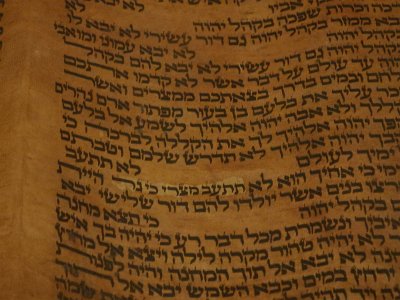 שפכה בקהל יהוה לא
יבא ממזר בקהל יהוה גם דור עשירי לא יבא לו
בקהל יהוה לא יבא עמוני ומואבי
בקהל יהוה גם דור עשירי לא יבא להם בקהל
יהוה עד עולם על דבר אשר לא קדמו אתכם
בלחם ובמים בדרך בצאתכם ממצרים ואשר
שכר עליך את בלעם בן בעור מפתור ארם נהרים
לקללך ולא אבה יהוה אלהיך לשמע אל בלעם
ויהפך יהוה אלהיך לך את הקללה לברכה כי
אהבך יהוה אלהיך לא תדרש שלמם וטבתם
ימיך לעולם לא תתעב
כי אחיך הוא לא תתעב מצרי כי גר היית
בנים אשר יולדו להם דור שלישי יבא
בקהל יהוה כי תצא מחנה
איביך ונשמרת מכל דבר רע כי יהיה בך איש
לא יהיה טהור מקרה לילה ויצא אל מחוץ
לא יבא אל תוך המחנה והיה לפנות
ירחץ במים וכבא השמש יבא אל תוך